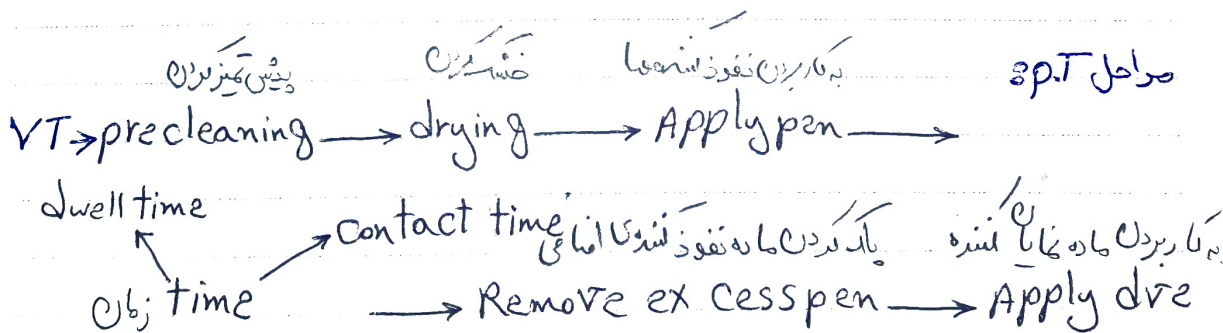 مراحل p.T:
پیش تمیز کردن خشک کردن به کار بردن نفوذ کننده‌ها
VT → precleaning → drying → Apply pen →
dwell time
contact time پاک کردن ماده نفوذ کننده‌ی اضافی به کار بردن ماده نمایان کننده
زمان time → Remove ex cess pen → Apply dve